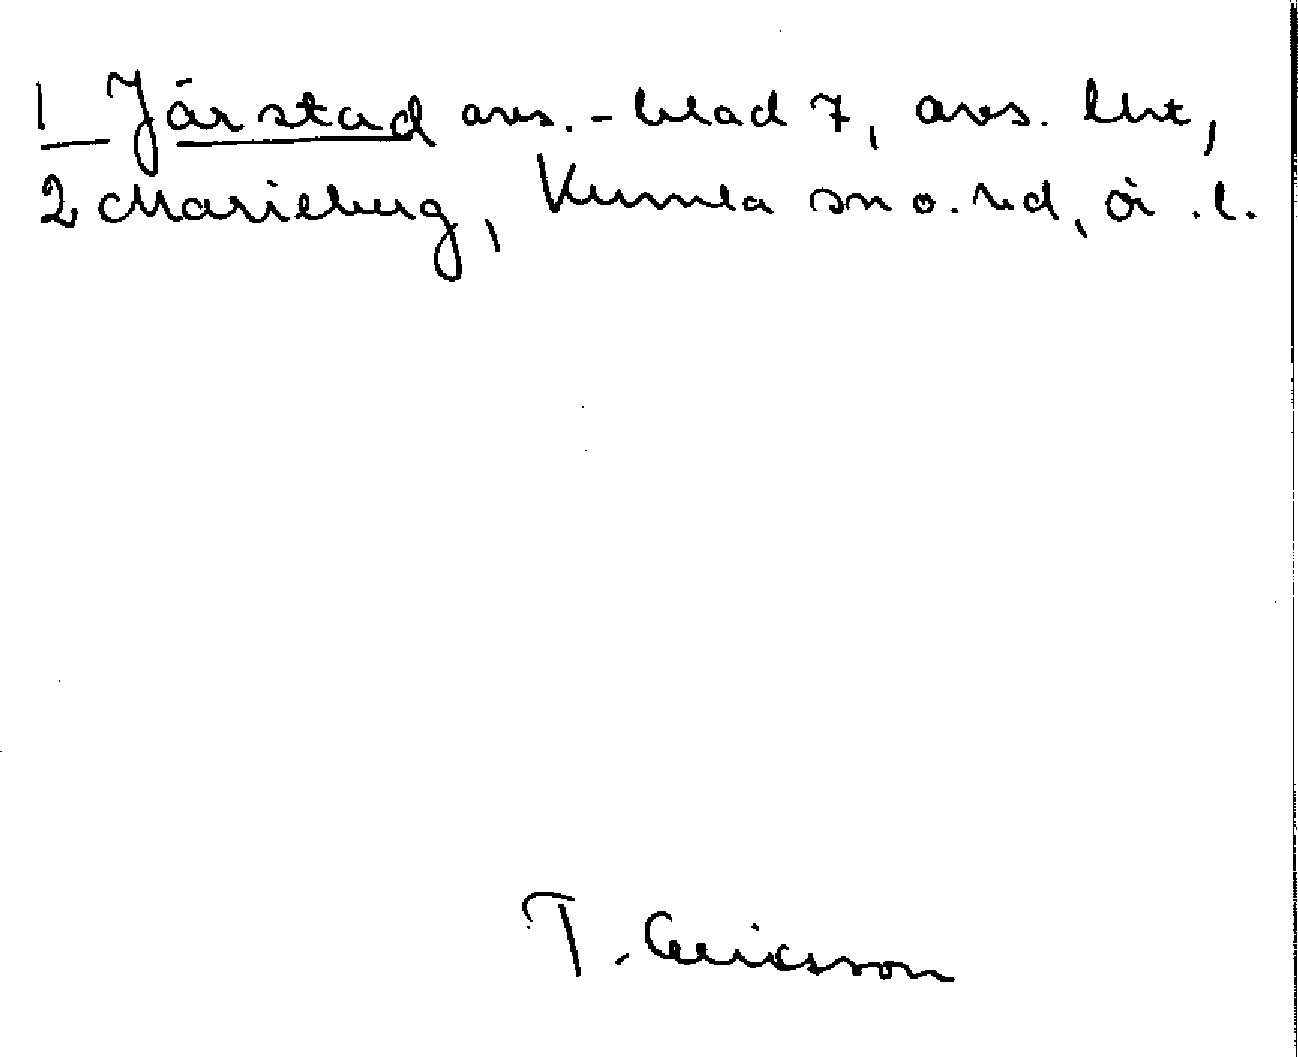 1 Järstad avs.-blad 7, avs. ört,
2 Marieberg, Kumla sn o. hd, ör. l.
T. Ericsson